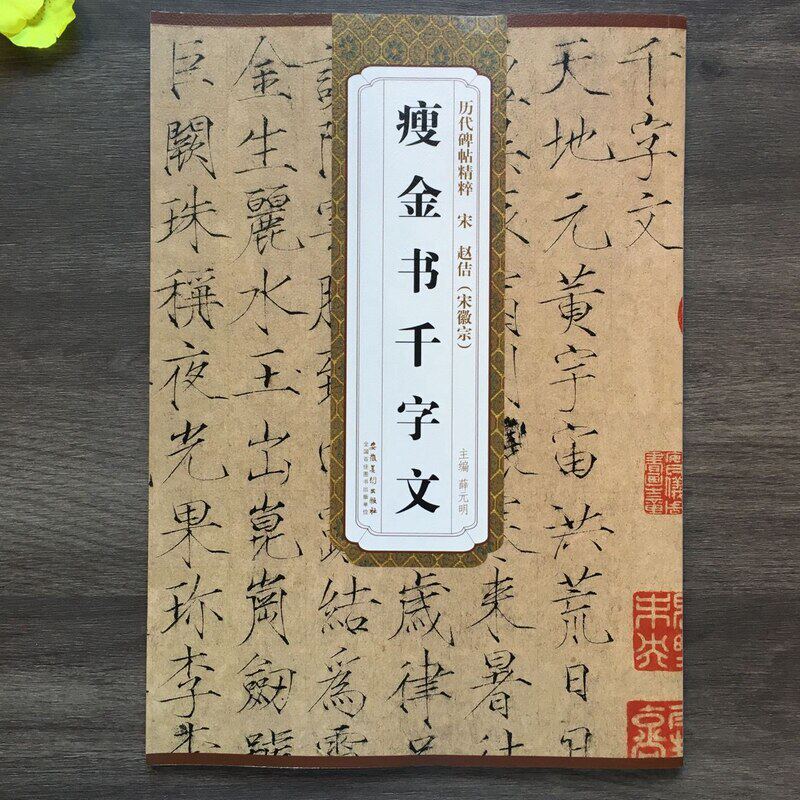 千字文
天地元黃宇宙洪荒日
來暑
歲律
結爲
金生麗水玉出崑崗劍號
巨闕珠稱夜光果珍李
历代碑帖精粹 宋 赵佶（宋徽宗）
主编 薛元明
瘦金书千字文
安徽美术出版社
全国百佳图书出版单位